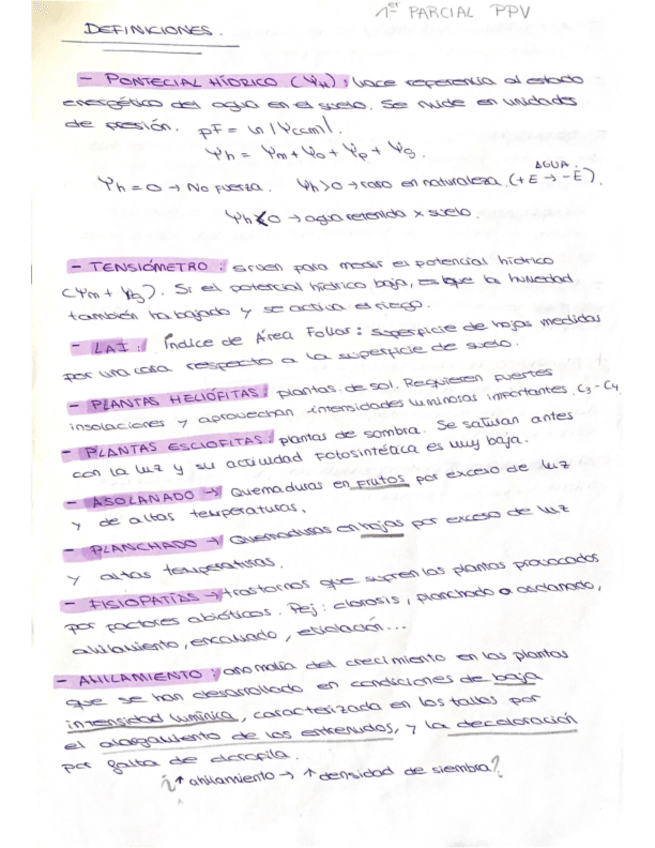 1er PARCIAL PPV
DEFINICIONES.
- PONTECIAL HÍDRICO (ΨH): hace referencia al estado
energético del agua en el suelo. Se mide en unidades
de presión. pF = ln |Ψccm|.
Ψh = Ψm + Ψo + Ψp + Ψg.
AGUA
Ψh = 0 → No fuerza. Ψh > 0 → raro en naturaleza (+E → -E).
Ψh < 0 → agua retenida x suelo.
- TENSIÓMETRO: sirven para medir el potencial hídrico
(Ψm + Ψg). Si el potencial hídrico baja, es que la humedad
también ha bajado y se activa el riego.
- LAI: Índice de Área Foliar: superficie de hojas medidas
por una cara respecto a la superficie de suelo.
- PLANTAS HELIÓFITAS: plantas de sol. Requieren fuertes
insolaciones y aprovechan intensidades luminosas importantes. C3-C4
- PLANTAS ESCIOFITAS: plantas de sombra. Se saturan antes
con la luz y su actividad fotosintética es muy baja.
- ASOLANADO → Quemaduras en frutos por exceso de luz
y de altas temperaturas.
- PLANCHADO → Quemaduras en hojas por exceso de luz
y altas temperaturas.
- FISIOPATÍAS → trastornos que sufren las plantas provocados
por factores abióticos. Pej: clorosis, planchado o asolanado,
ahilamiento, encamado, etiolación...
- AHILAMIENTO: anomalía del crecimiento en las plantas
que se han desarrollado en condiciones de baja
intensidad lumínica, caracterizada en los tallos por
el alargamiento de los entrenudos, y la decoloración
por falta de clorofila.
¿↑ ahilamiento → ↑ densidad de siembra?